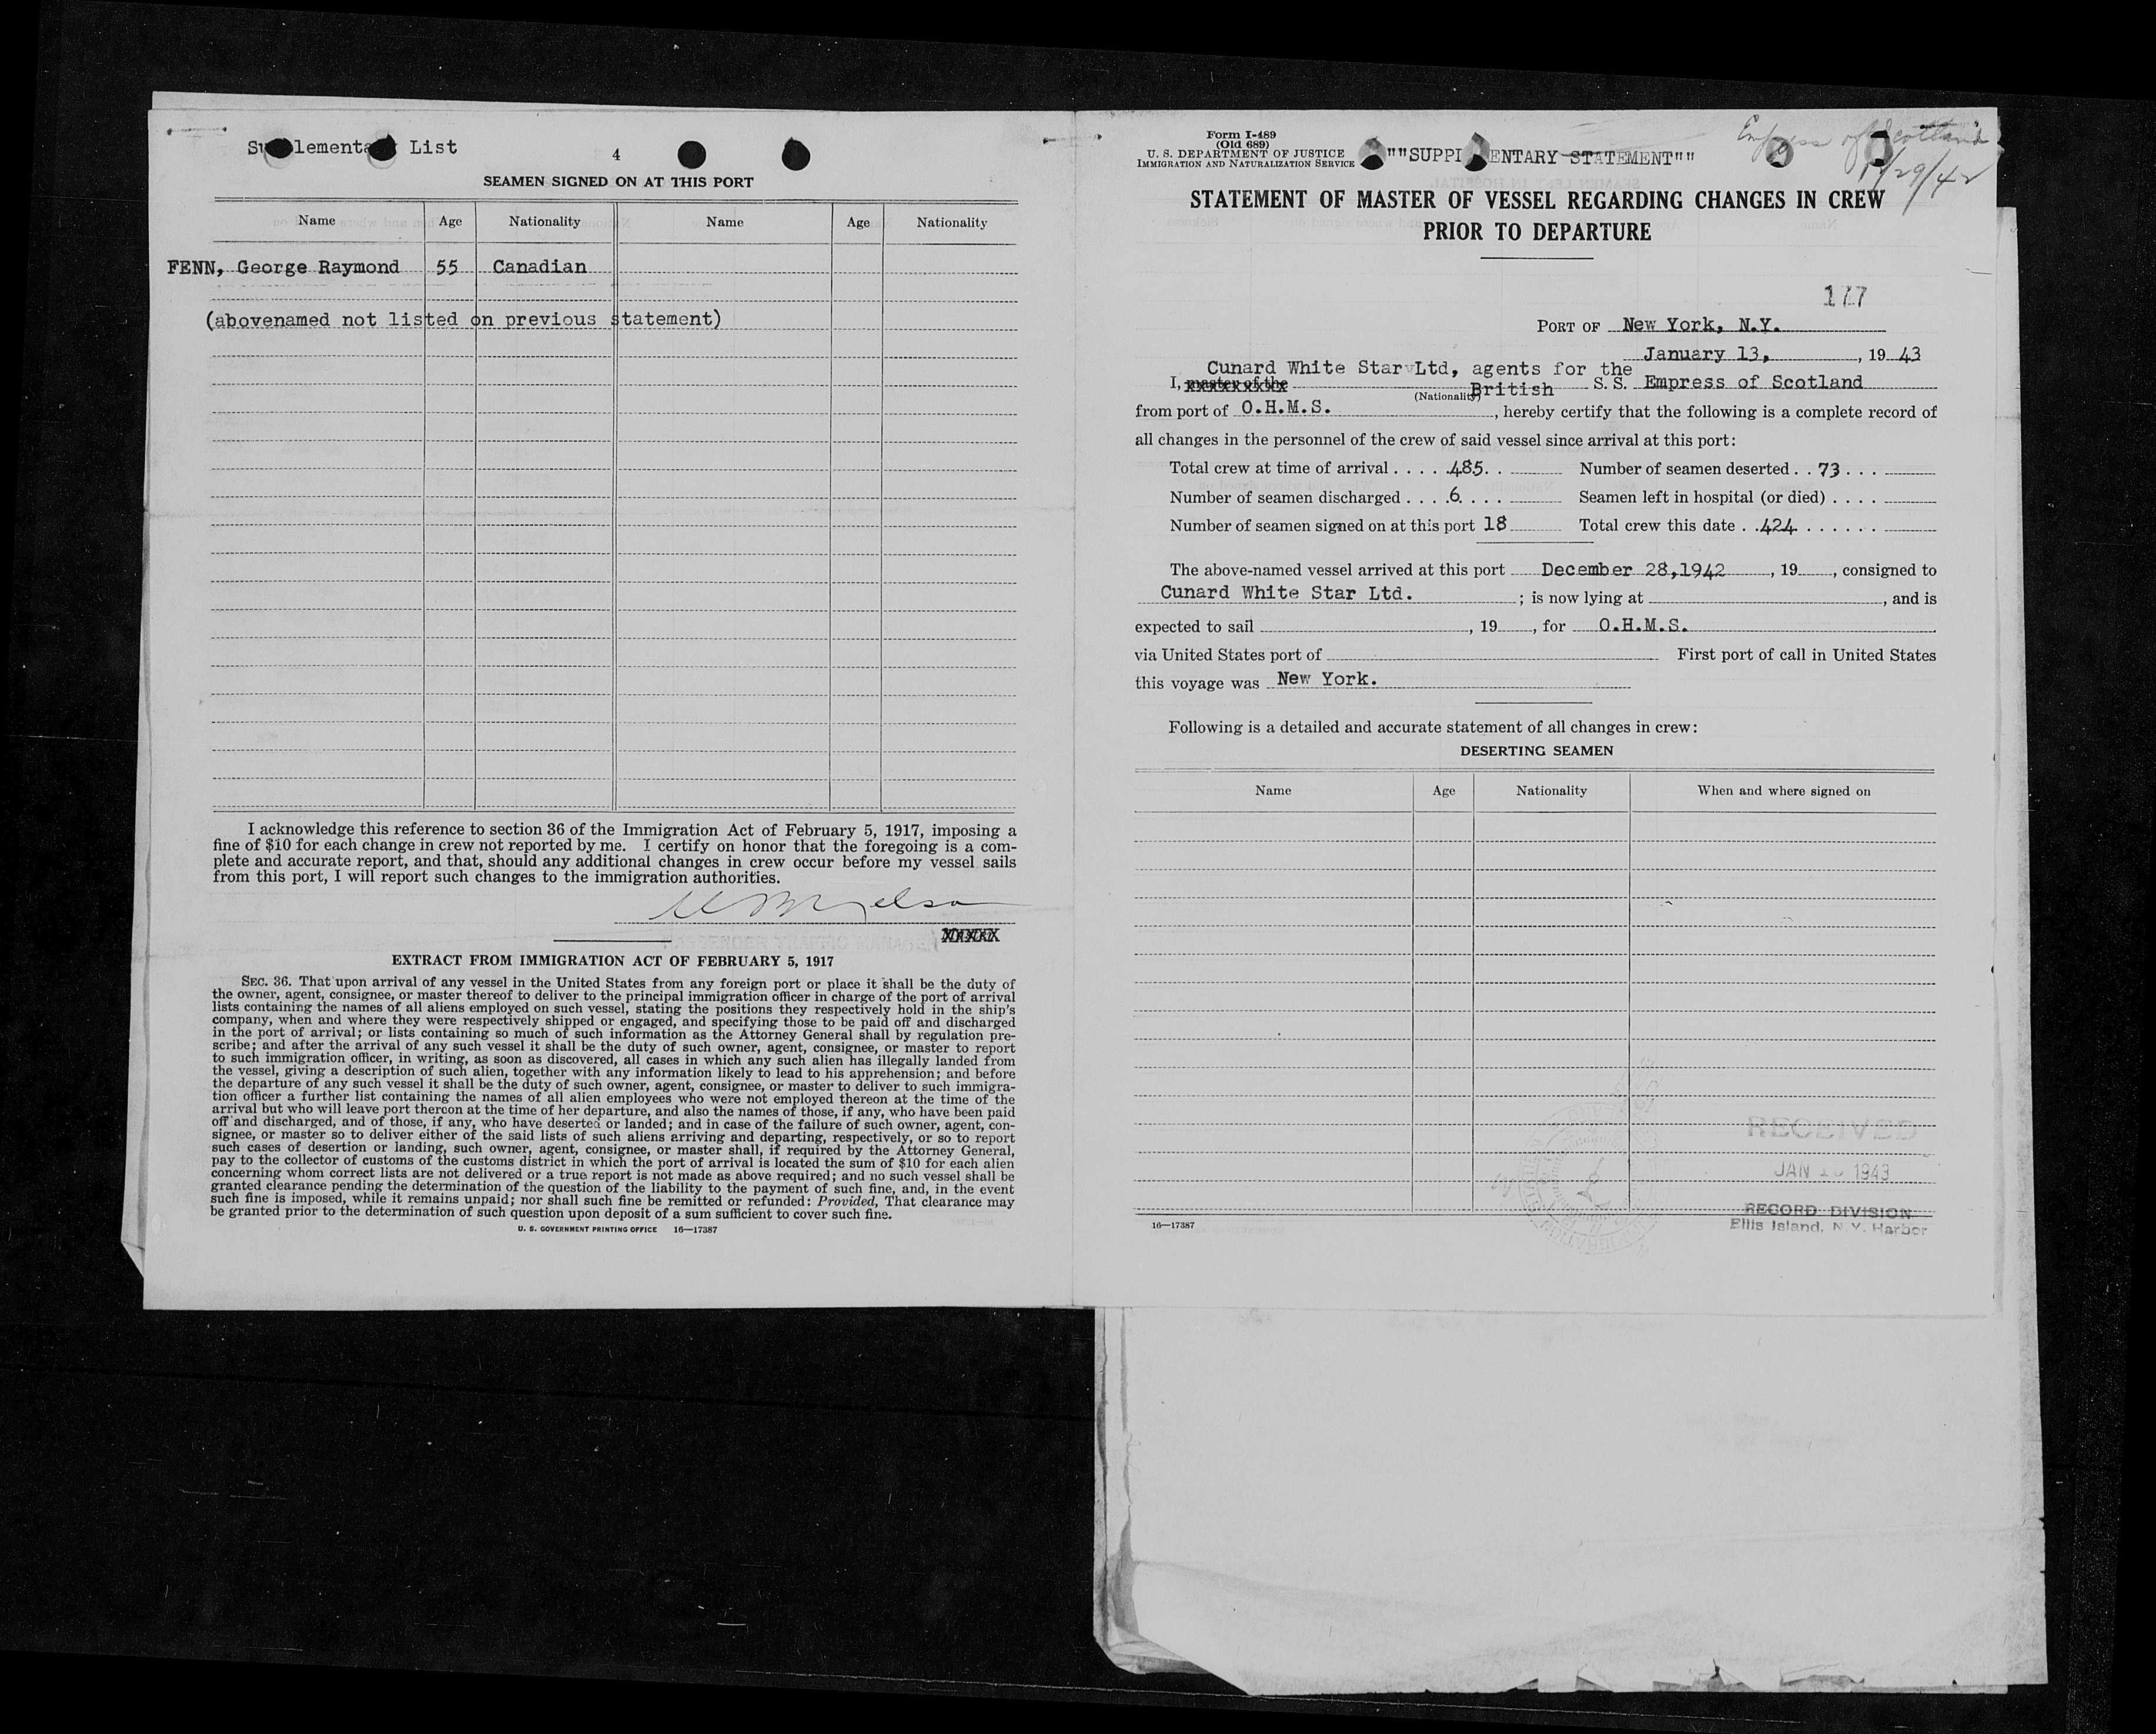 Supplementary List
4
SEAMEN SIGNED ON AT THIS PORT
Name Age Nationality Name Age Nationality
FENN, George Raymond 55 Canadian
(abovenamed not listed on previous statement)
I acknowledge this reference to section 36 of the Immigration Act of February 5, 1917, imposing a
fine of $10 for each change in crew not reported by me. I certify on honor that the foregoing is a com-
plete and accurate report, and that, should any additional changes in crew occur before my vessel sails
from this port, I will report such changes to the immigration authorities.
EXTRACT FROM IMMIGRATION ACT OF FEBRUARY 5, 1917
SEC. 36. That upon arrival of any vessel in the United States from any foreign port or place it shall be the duty of
the owner, agent, consignee, or master thereof to deliver to the principal immigration officer in charge of the port of arrival
lists containing the names of all aliens employed on such vessel, stating the positions they respectively hold in the ship's
company, when and where they were respectively shipped or engaged, and specifying those to be paid off and discharged
in the port of arrival; or lists containing so much of such information as the Attorney General shall by regulation pre-
scribe; and after the arrival of any such vessel it shall be the duty of such owner, agent, consignee, or master to report
to such immigration officer, in writing, as soon as discovered, all cases in which any such alien has illegally landed from
the vessel, giving a description of such alien, together with any information likely to lead to his apprehension; and before
the departure of any such vessel it shall be the duty of such owner, agent, consignee, or master to deliver to such immigra-
tion officer a further list containing the names of all alien employees who were not employed thereon at the time of the
arrival but who will leave port thereon at the time of her departure, and also the names of those, if any, who have been paid
off and discharged, and of those, if any, who have deserted or landed; and in case of the failure of such owner, agent, con-
signee, or master so to deliver either of the said lists of such aliens arriving and departing, respectively, or so to report
such cases of desertion or landing, such owner, agent, consignee, or master shall, if required by the Attorney General,
pay to the collector of customs of the customs district in which the port of arrival is located the sum of $10 for each alien
concerning whom correct lists are not delivered or a true report is not made as above required; and no such vessel shall be
granted clearance pending the determination of the question of the liability to the payment of such fine, and, in the event
such fine is imposed, while it remains unpaid; nor shall such fine be remitted or refunded: Provided, That clearance may
be granted prior to the determination of such question upon deposit of a sum sufficient to cover such fine.
U. S. GOVERNMENT PRINTING OFFICE 16—17387
Form I-489
(Old 689)
U. S. DEPARTMENT OF JUSTICE
IMMIGRATION AND NATURALIZATION SERVICE
""SUPPLEMENTARY STATEMENT""
Empress of Scotland
STATEMENT OF MASTER OF VESSEL REGARDING CHANGES IN CREW
PRIOR TO DEPARTURE
177
PORT OF New York, N.Y.
January 13, , 19 43
Cunard White Star Ltd, agents for the
I, master of the British S. S. Empress of Scotland
(Nationality)
from port of O.H.M.S. , hereby certify that the following is a complete record of
all changes in the personnel of the crew of said vessel since arrival at this port:
Total crew at time of arrival . . . . 485. . Number of seamen deserted . . 73 . . .
Number of seamen discharged . . . . 6. . . . Seamen left in hospital (or died) . . . .
Number of seamen signed on at this port 18 Total crew this date . . 424 . . . . . . .
The above-named vessel arrived at this port December 28,1942 , 19 , consigned to
Cunard White Star Ltd. ; is now lying at , and is
expected to sail , 19 , for O.H.M.S.
via United States port of First port of call in United States
this voyage was New York.
Following is a detailed and accurate statement of all changes in crew:
DESERTING SEAMEN
Name Age Nationality When and where signed on
RECEIVED
JAN 1943
RECORD DIVISION
Ellis Island, N.Y. Harbor
16—17387